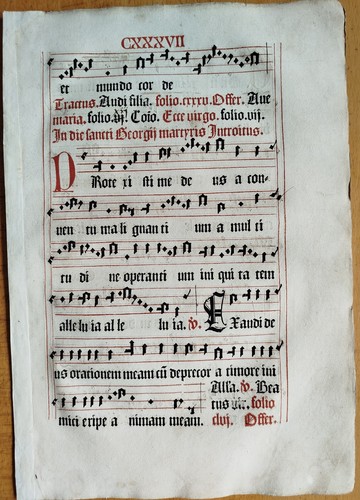 CXXXVII
et mundo cor de
Tractus. Audi filia. folio. cxxv. Offer. Aue
maria. folio. Coïo. Ecce uirgo. folio. vij.
In die sancti Georgij martyris Introitus.
PRote xi sti me de us a con-
uen tu ma li gnan ti um a mul ti
tu di ne operanti um ini qui ta tem
alle lu ia al le lu ia. ℣. EXaudi de
us orationem meam cū deprecor a timore ini
Alla. ℣. Bea
mici eripe a nimam meam. tus uir. folio
clvj. Offer.